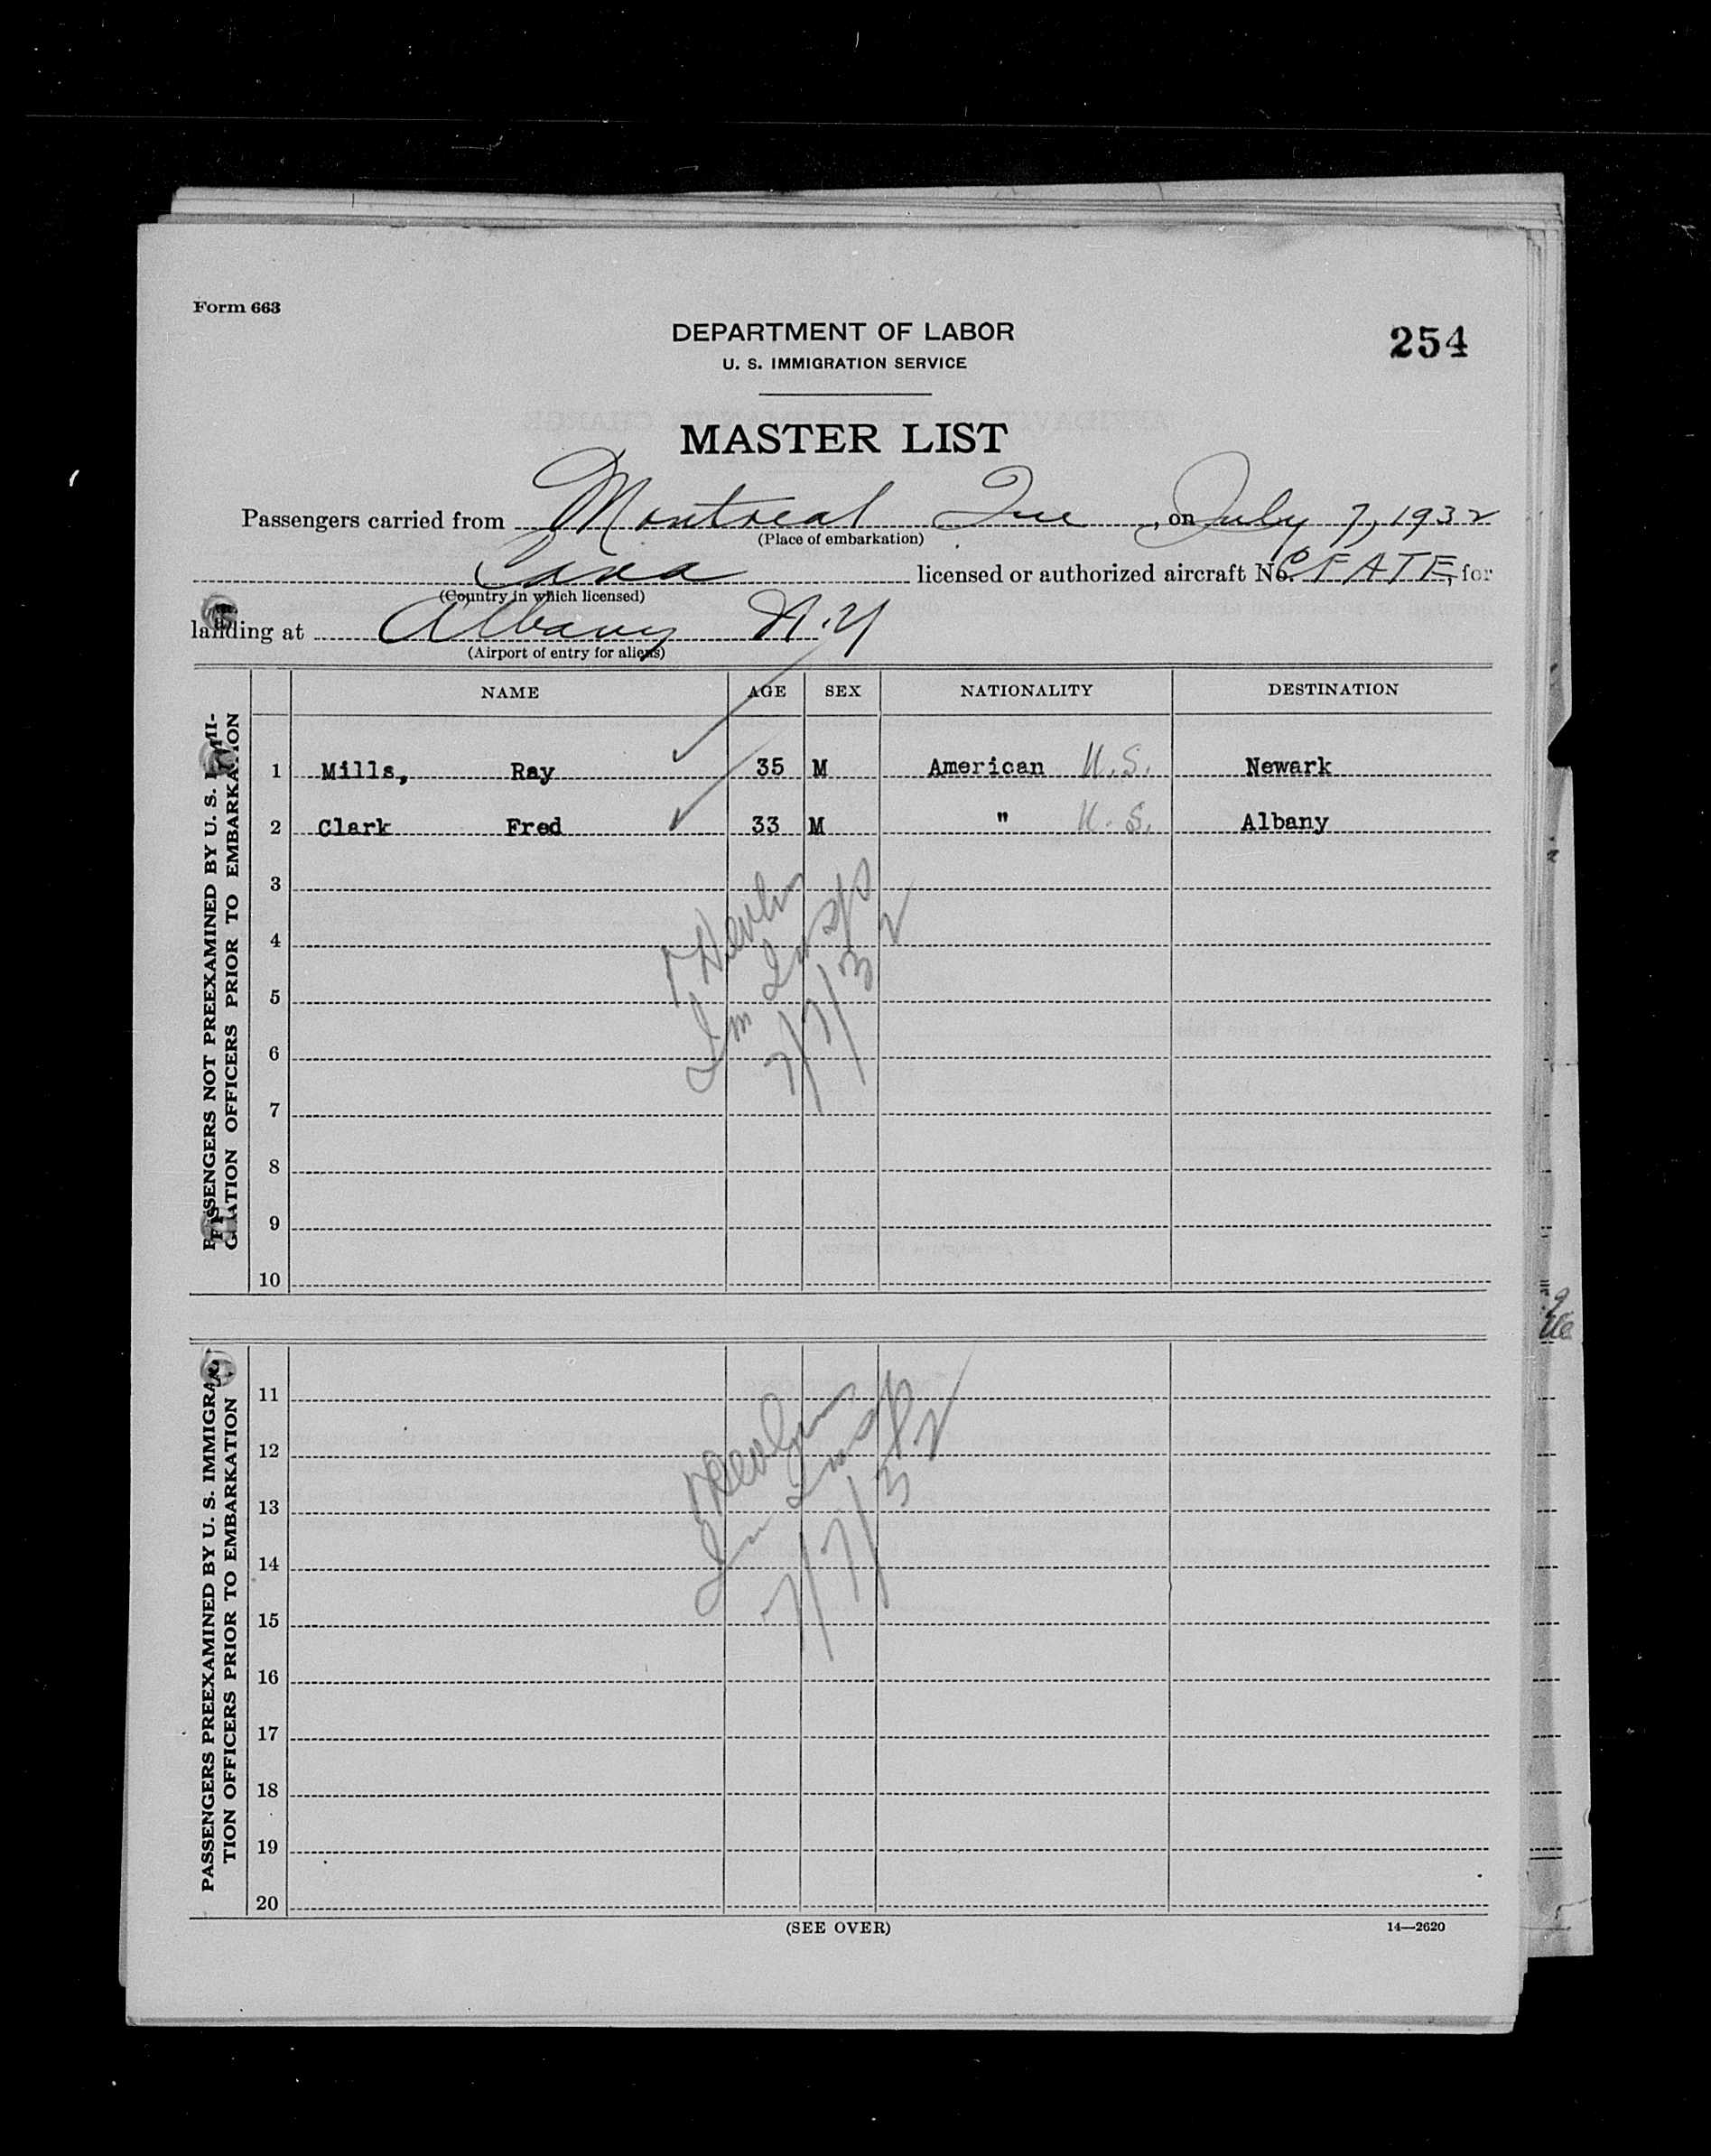 Form 663
DEPARTMENT OF LABOR
254
U. S. IMMIGRATION SERVICE
MASTER LIST
Passengers carried from Montreal Que, on July 7, 1932
(Place of embarkation)
Cana licensed or authorized aircraft No. CFATE, for
(Country in which licensed)
landing at Albany N.Y
(Airport of entry for aliens)
NAME AGE SEX NATIONALITY DESTINATION
PASSENGERS NOT PREEXAMINED BY U. S. IMMI-
GRATION OFFICERS PRIOR TO EMBARKATION
1 Mills, Ray 35 M American U.S. Newark
2 Clark Fred 33 M " U.S. Albany
3
4
5
6
7
8
9
10
Devlin
Im Insp
7/7/32
PASSENGERS PREEXAMINED BY U. S. IMMIGRA-
TION OFFICERS PRIOR TO EMBARKATION
11
12
13
14
15
16
17
18
19
20
Devlin
Im Insp
7/7/32
(SEE OVER)
14—2620